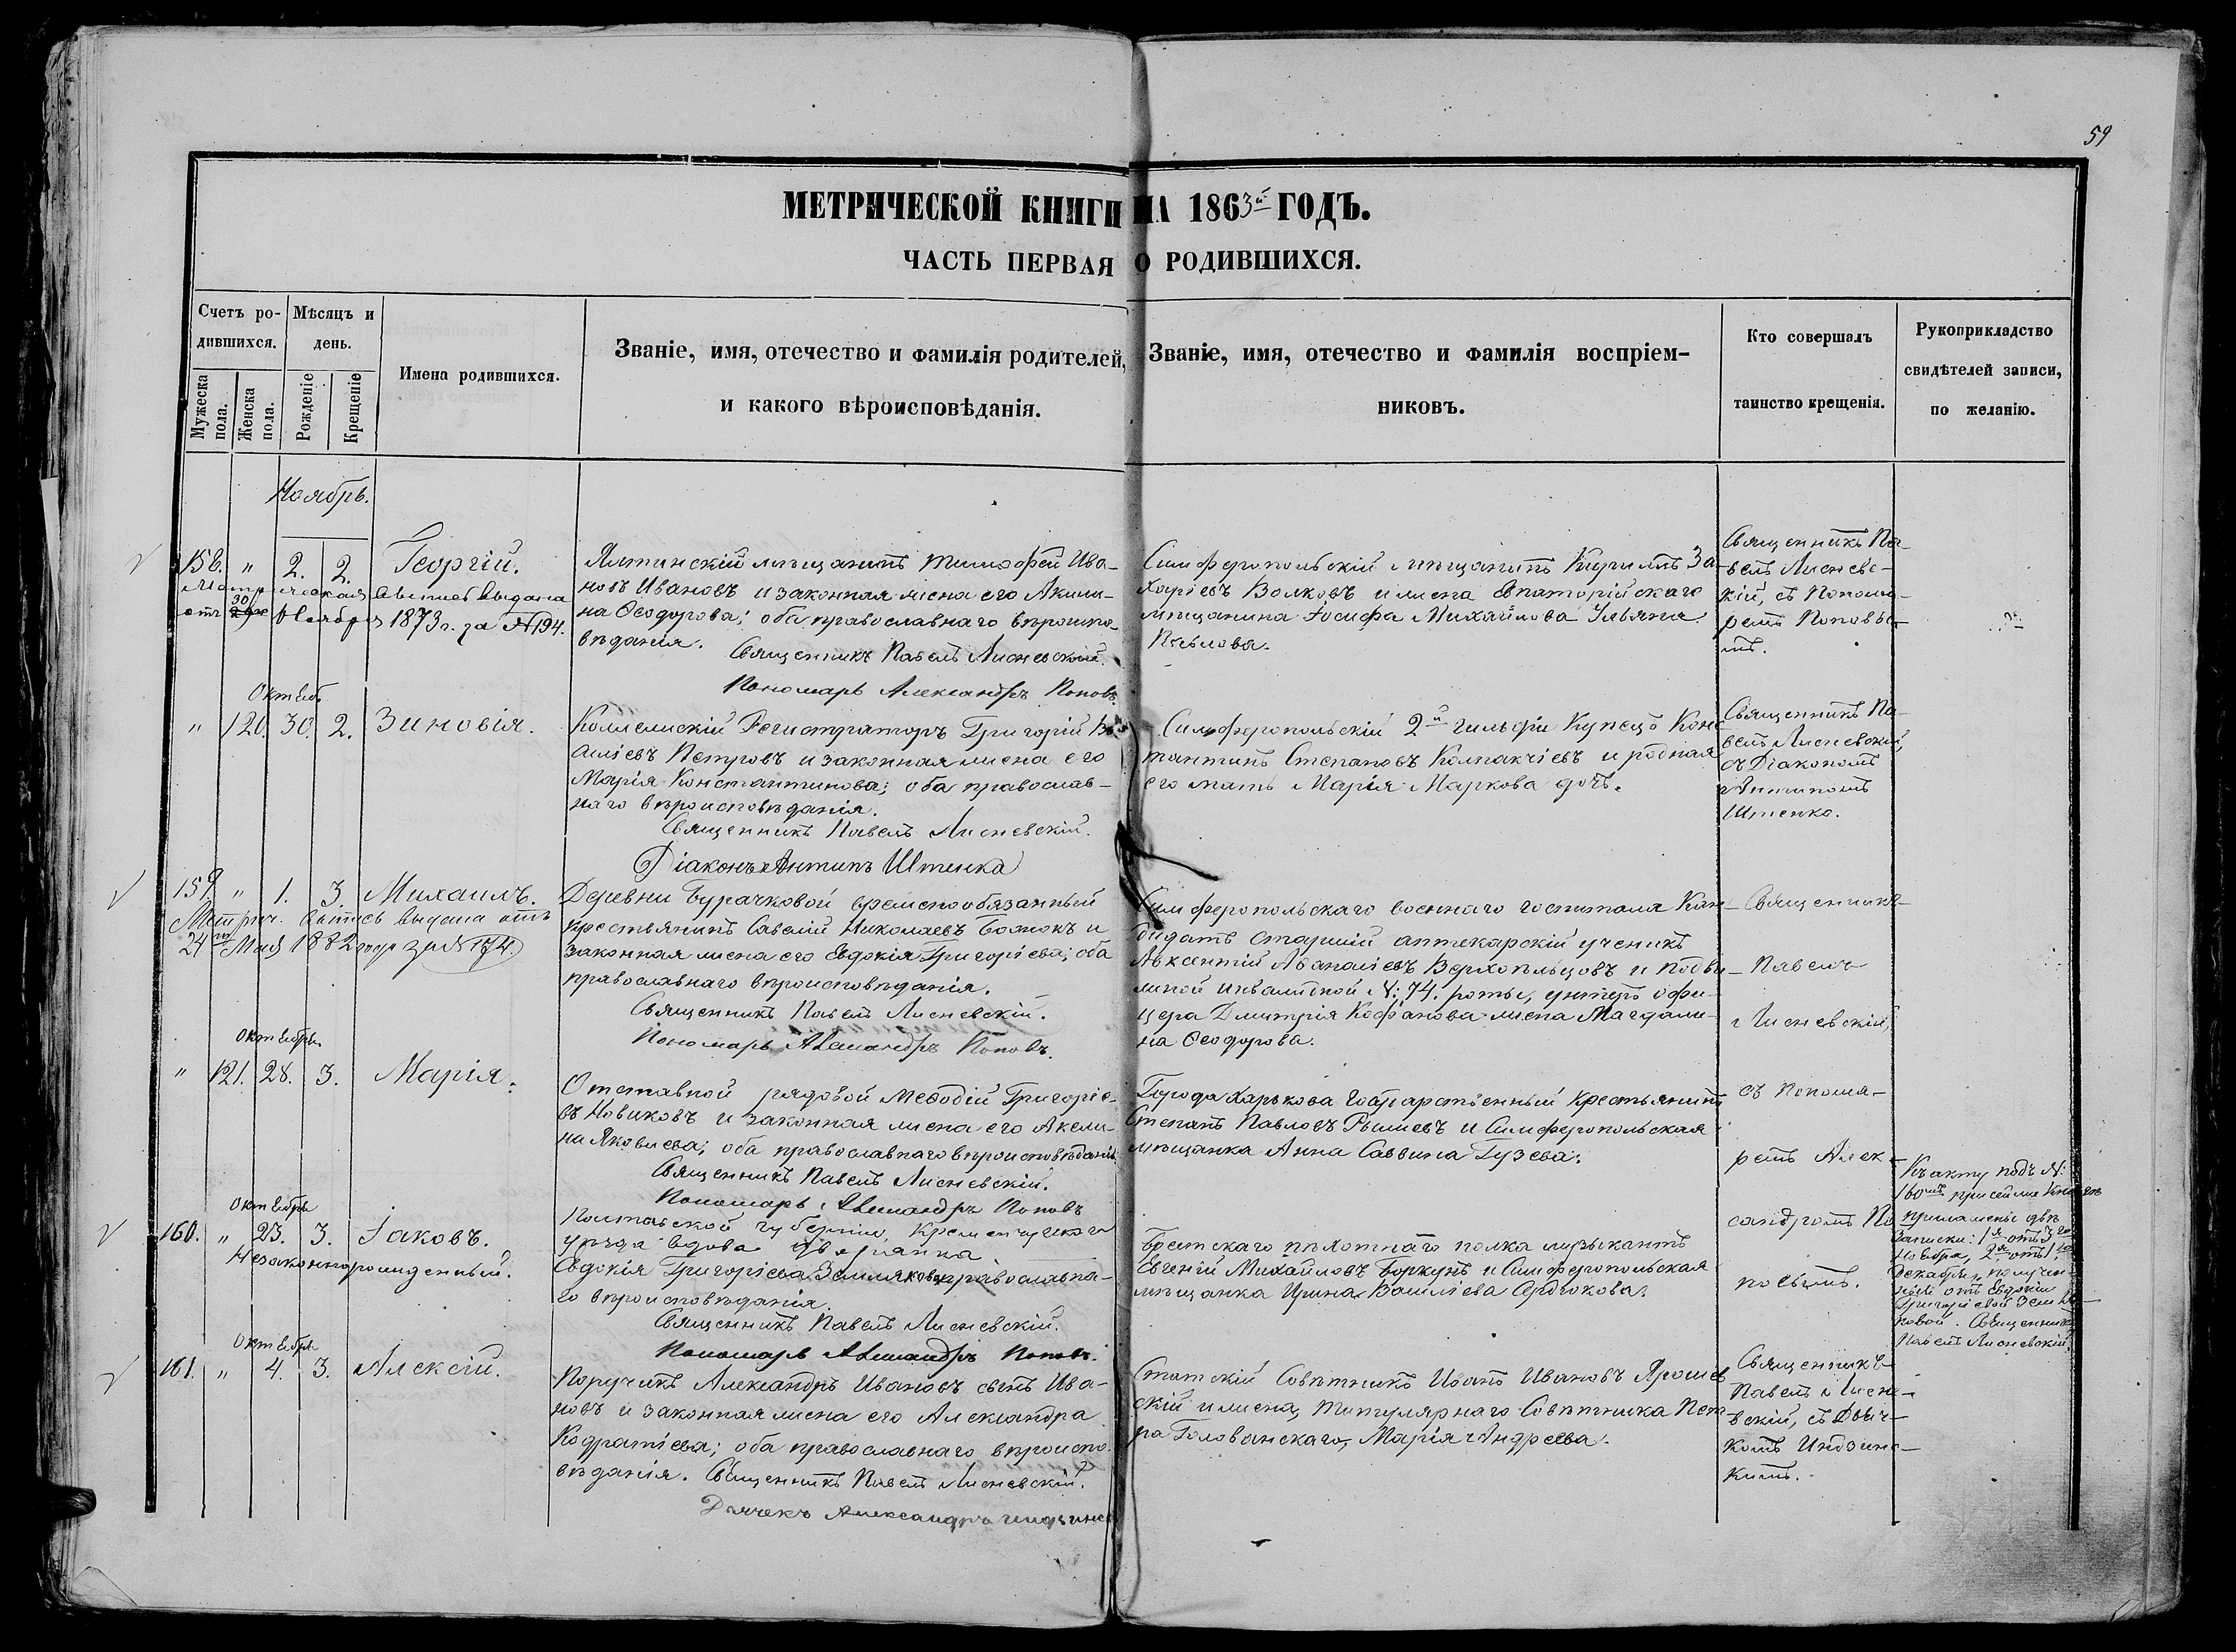 59
МЕТРИЧЕСКОЙ КНИГИ НА 1863й ГОДЪ.
ЧАСТЬ ПЕРВАЯ О РОДИВШИХСЯ.
Счетъ ро-
дившихся.
Мужеска
пола.
Женска
пола.
Мѣсяцъ и
день.
Рожденіе
Крещеніе
Имена родившихся.
Званіе, имя, отечество и фамилія родителей,
и какого вѣроисповѣданія.
Званіе, имя, отечество и фамилія воспріем-
никовъ.
Кто совершалъ
таинство крещенія.
Рукоприкладство
свидѣтелей записи,
по желанію.
Ноябрь.
158. " 2. 2. Георгій.
Метрическая выпись выдана
отъ 30 Ноября 1873 г. за № 194.
Ялтинскій мѣщанинъ Тимофей Ива-
новъ Ивановъ и законная жена его Акили-
на Ѳеодорова; оба православнаго вѣроиспо-
вѣданія.
Священникъ Павелъ Лисневскій.
Пономарь Александръ Поповъ.
Симферопольскій мѣщанинъ Кирилъ За-
харіевъ Волковъ и жена Евпаторійскаго
мѣщанина Іосифа Михайлова Ульяна
Павлова.
Священникъ Па-
велъ Лисневс-
кій, съ Понома-
ремъ Поповы-
мъ.
Октяб.
" 120. 30. 2. Зиновія.
Коллежскій Регистраторъ Григорій Ва-
силіевъ Петровъ и законная жена его
Марія Константинова; оба православ-
наго вѣроисповѣданія.
Священникъ Павелъ Лисневскій.
Діаконъ Антипъ Штенка
Симферопольскій 2й гильдіи Купецъ Конс
тантинъ Степановъ Колпакчіевъ и родная
его мать Марія Маркова дочь.
Священникъ Па-
велъ Лисневскій,
съ Діакономъ
Антипомъ
Штенко.
159. " 1. 3. Михаилъ.
Метрич. выпись выдана отъ
24го Мая 1882 года за № 174.
Деревни Бурачковой временнообязанный
крестьянинъ Савелій Николаевъ Божокъ и
законная жена его Евдокія Григоріева; оба
православнаго вѣроисповѣданія.
Священникъ Павелъ Лисневскій.
Пономарь Александръ Поповъ.
Симферопольскаго военнаго госпиталя Кан-
дидатъ старшій аптекарскій ученикъ
Авксентій Аѳанасіевъ Верхопльцовъ и подви-
жной инвалидной №: 74. роты, унтеръ офи-
цера Димитрія Кофанова жена Магдали-
на Ѳеодорова.
Священникъ
Павелъ
Лисневскій,
Октябрь.
" 121. 28. 3. Марія.
Отставной рядовой Меѳодій Григоріе-
въ Новиковъ и законная жена его Акели-
на Яковлева; оба православнаго вѣроисповѣданія.
Священникъ Павелъ Лисневскій.
Пономарь Александръ Поповъ
Города Харькова Государственный крестьянинъ
Степанъ Павловъ Рыжевъ и Симферопольская
мѣщанка Анна Саввина Гузева.
съ Понома-
ремъ Алек-
сандромъ По
повымъ.
Октябрь
160. " 23. 3. Іаковъ.
Незаконнорожденный.
Полтавской губерніи, Кременчугскаго
уѣзда вдова дворянка
Евдокія Григоріева Землякова православна-
го вѣроисповѣданія.
Священникъ Павелъ Лисневскій.
Пономарь Александръ Поповъ.
Брестскаго пѣхотнаго полка музыкантъ
Евгеній Михайловъ Боркунъ и Симферопольская
мѣщанка Ирина Василіева Сердюкова.
Къ акту подъ №:
160мъ при сей же книгѣ
приложены двѣ
записки: 1я отъ 3го
Ноября, 2я отъ 1го
Декабря, получен-
ныя отъ Евдокіи
Григоріевой Земля-
ковой. Священникъ
Павелъ Лисневскій.
Октября
161. " 4. 3. Алексій.
Поручикъ Александръ Ивановъ сынъ Ива-
новъ и законная жена его Александра
Кодратіева; оба православнаго вѣроиспо-
вѣданія. Священникъ Павелъ Лисневскій.
Дьячекъ Александръ Индзинс
Статскій Совѣтникъ Иванъ Ивановъ Ярошев
скій и жена, Титулярнаго Совѣтника Пет-
ра Голованскаго, Марія Андреева.
Священникъ
Павелъ Лисне-
вскій, съ Дьяч-
комъ Индзинс-
кимъ.